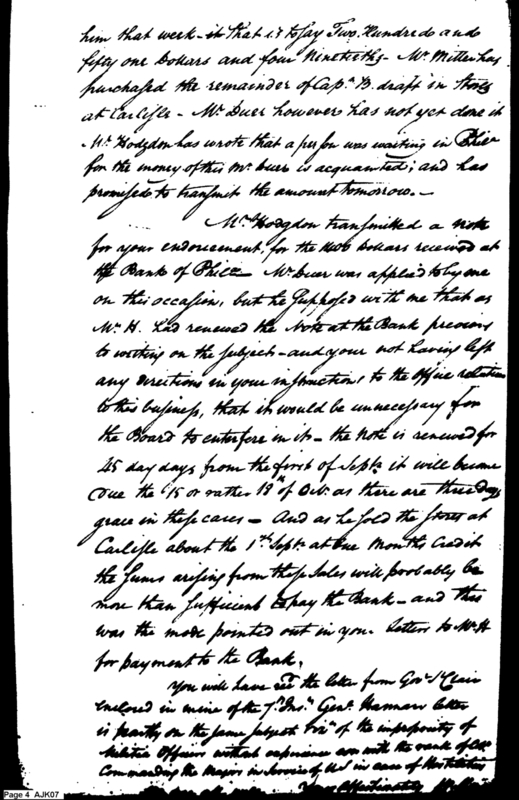 him that week - it that is to say Two Hundreds and
fifty one Dollars and four Ninetieths - Mr. Miller has
purchased the remainder of Capn. B. draft in Stores
at Carlisle - Mr. Duer however has not yet done it
Mr. Hodgdon has wrote that a person was waiting in Phila
for the money of this Mr. Duer is acquainted; and has
promised to transmit the amount tomorrow. -
Mr. Hodgdon transmitted a note
for your endorcement, for the Dollars received at
the Bank of Phila Mr. Duer was applied to by me
on this occasion, but he supposed with me that as
Mr. H. had renewed the Note at the Bank previous
to writing on the subject - and your not having left
any directions in your instructions to the Office relative
to this business, that it would be unnecessary for
the Board to enterfere in it - the Note is renewed for
45 day days from the first of Sept. it will become
due the 15 or rather 18th of Octr. as there are three days
grace in these cases - And as he sold the stores at
Carlisle about the 1st Sept. at one Months Credit
the sums arising from these sales will poobably be
more than sufficient to pay the Bank - and this
was the mode pointed out in your letters to Mr. H
for payment to the Bank.
You will have the letter from Govr. St Clair
enclosed in mine of the 7th Inst. Genl. Harmar letter
is partly on the same subject Viz. of the impropriety of
Militia Officers without experience even with the rank of
Commanding the Majors in Service of U.S in case of Hostilities
Affectionately
Page 4 AJK07